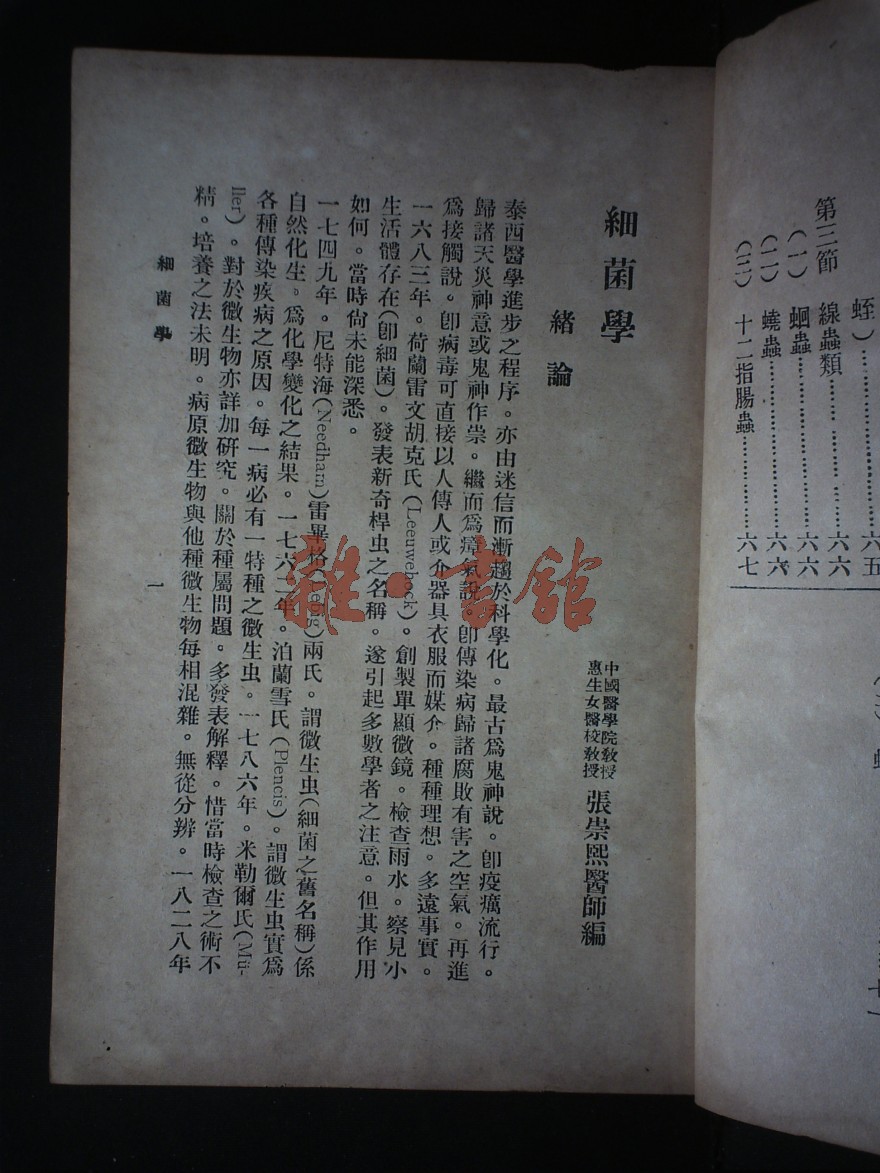 蛭）……………六五
第三節　線蟲類……………六六
（一）蛔蟲……………六六
（二）蟯蟲……………六六
（三）十二指腸蟲……………六七
細菌學
中國醫學院教授
惠生女醫校教授
張崇熙醫師編
緒論
泰西醫學進步之程序。亦由迷信而漸趨於科學化。最古爲鬼神說。卽疫癘流行。
歸諸天災神意或鬼神作祟。繼而爲瘴氣說。卽傳染病歸諸腐敗有害之空氣。再進
爲接觸說。卽病毒可直接以人傳人或介器具衣服而媒介。種種理想。多遠事實。
一六八三年。荷蘭雷文胡克氏(Leeuweback)。創製單顯微鏡。檢查雨水。察見小
生活體存在(卽細菌)。發表新奇桿虫之名稱。遂引起多數學者之注意。但其作用
如何。當時尙未能深悉。
一七四九年。尼特海(Needham)雷畢格(Liebig)兩氏。謂微生虫(細菌之舊名稱)係
自然化生。爲化學變化之結果。一七六二年。泊蘭雪氏(Plencis)。謂微生虫實爲
各種傳染疾病之原因。每一病必有一特種之微生虫。一七八六年。米勒爾氏(Mü-
ller)。對於微生物亦詳加硏究。關於種屬問題。多發表解釋。惜當時檢查之術不
精。培養之法未明。病原微生物與他種微生物每相混雜。無從分辨。一八二八年
細菌學
一
雜·書館